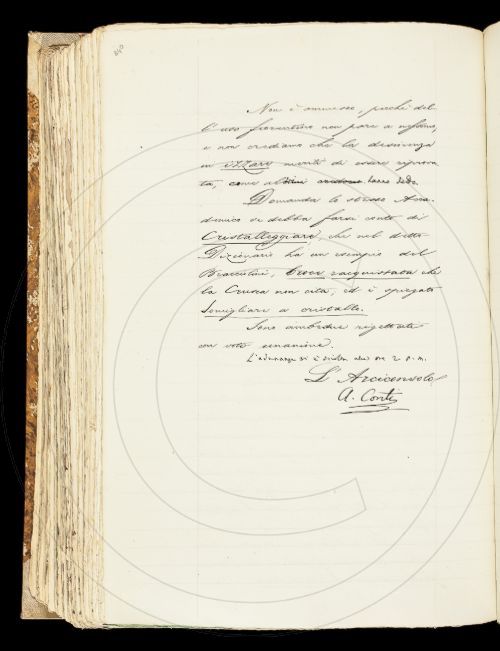 Non è ammesso, perché del-
l'uso fiorentino non pare a nessuno,
e non crediamo che la desinenza
in izzare meriti di essere registra-
ta, come
Domanda lo stesso Acca-
demico se debba farsi conto di
Cristalleggiare, che nel detto
Dizionario ha un esempio del
Bracciolini, Croce racquistata che
la Crusca non cita, ed è spiegato
Somigliare a cristallo.
Sono ambedue rigettate
con voto unanime.
L'adunanza si è sciolta alle ore 2 p. m.
L'Arciconsolo
A. Conti